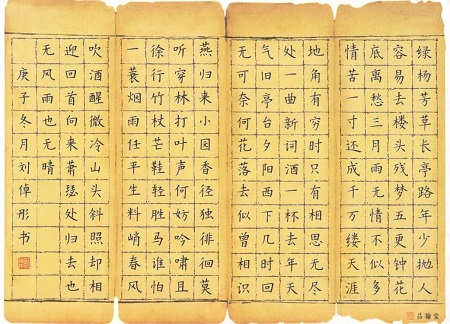 绿杨芳草长亭路年少抛人
容易去楼头残梦五更钟花
底离愁三月雨无情不似多
情苦一寸还成千万缕天涯
地角有穷时只有相思无尽
处一曲新词酒一杯去年天
气旧亭台夕阳西下几时回
无可奈何花落去似曾相识
燕归来小园香径独徘徊莫
听穿林打叶声何妨吟啸且
徐行竹杖芒鞋轻胜马谁怕
一蓑烟雨任平生料峭春风
吹酒醒微冷山头斜照却相
迎回首向来萧瑟处归去也
无风雨也无晴
庚子冬月刘倬彤书
品翰堂